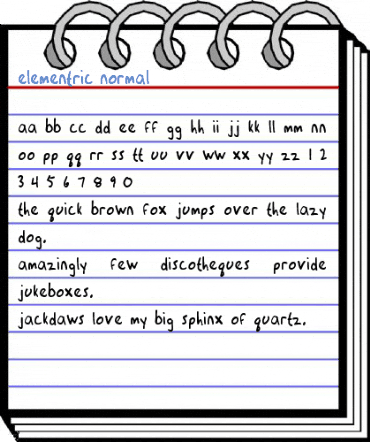 elementric normal
aa bb cc dd ee ff gg hh ii jj kk ll mm nn
oo pp qq rr ss tt uu vv ww xx yy zz 1 2
3 4 5 6 7 8 9 0
the quick brown fox jumps over the lazy
dog.
amazingly few discotheques provide
jukeboxes.
jackdaws love my big sphinx of quartz.